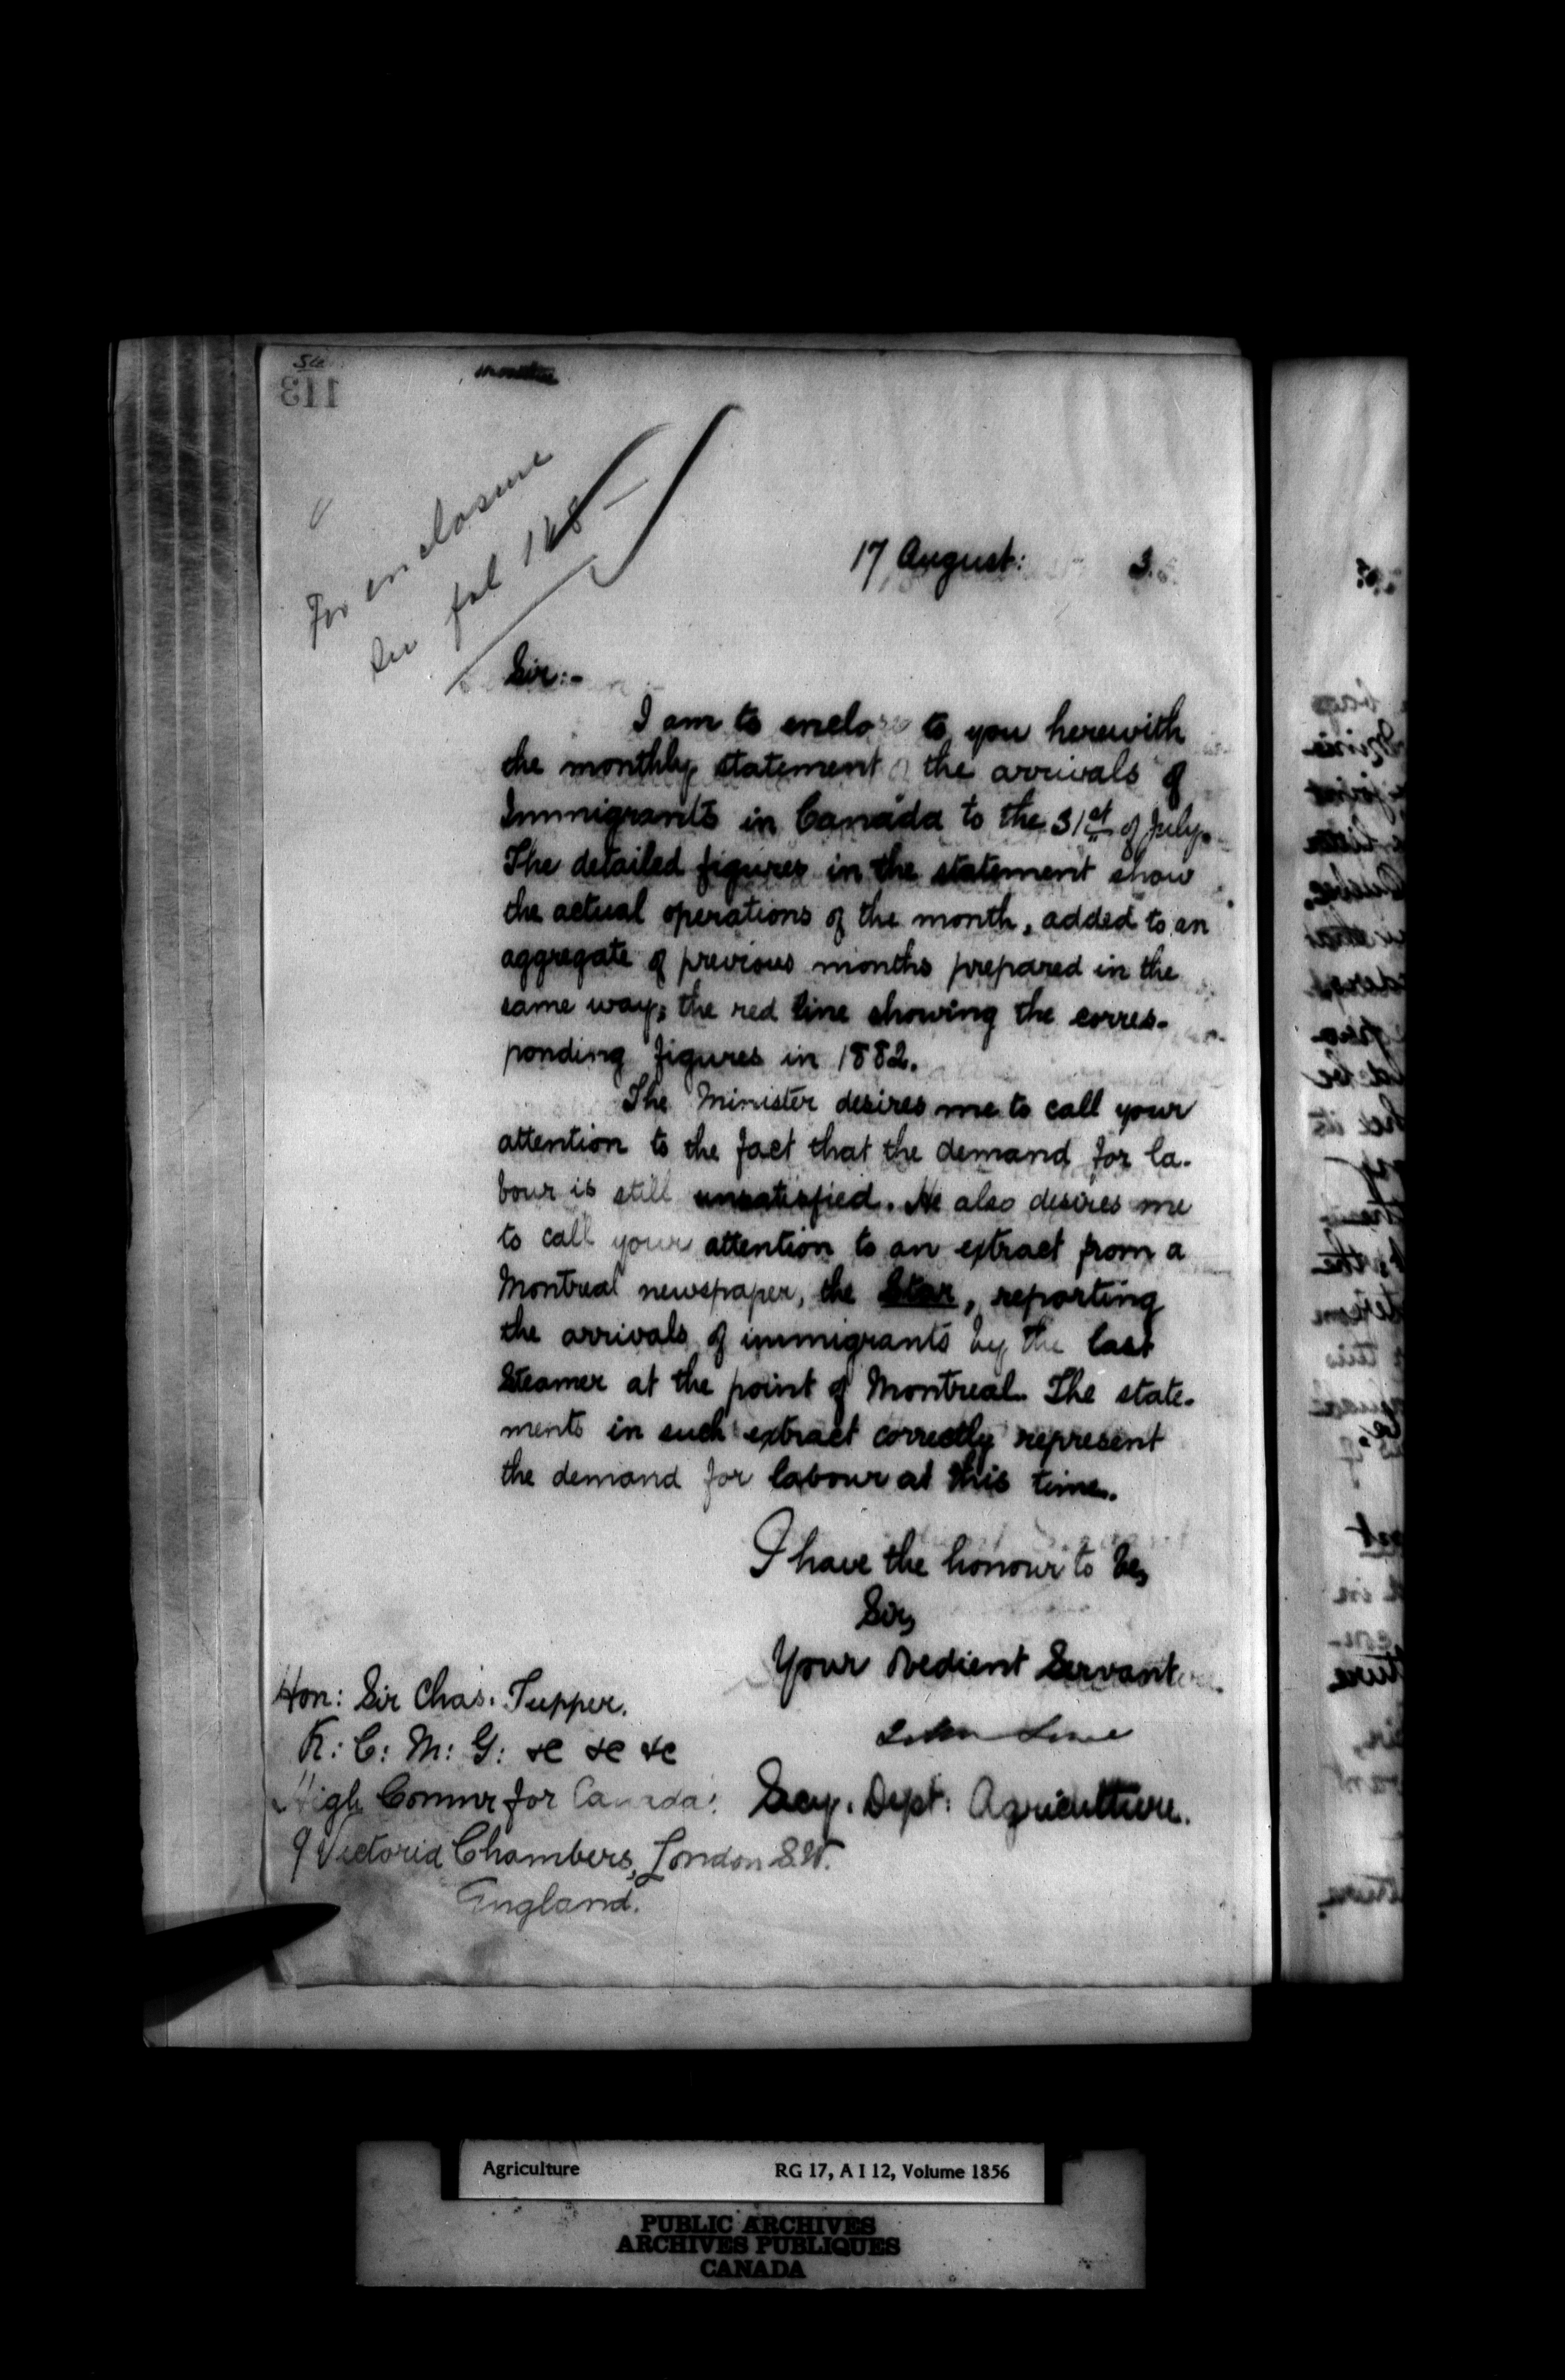 113
For enclosure
See fol 148
17 August: 3.
Sir:-
I am to enclose to you herewith
the monthly statement of the arrivals of
Immigrants in Canada to the 31st of July.
The detailed figures in the statement show
the actual operations of the month, added to an
aggregate of previous months prepared in the
same way; the red line showing the corres-
ponding figures in 1882.
The Minister desires me to call your
attention to the fact that the demand for la-
bour is still unsatisfied. He also desires me
to call your attention to an extract from a
Montreal newspaper, the Star, reporting
the arrivals of immigrants by the last
Steamer at the point of Montreal. The state-
ments in such extract correctly represent
the demand for labour at this time.
I have the honour to be,
Sir,
Your Obedient Servant
John Lowe
Secy. Dept: Agriculture.
Hon: Sir Chas. Tupper.
K: C: M: G: &c &c &c
High Commr for Canada:
9 Victoria Chambers, London S.W.
England.
Agriculture RG 17, A I 12, Volume 1856
PUBLIC ARCHIVES
ARCHIVES PUBLIQUES
CANADA